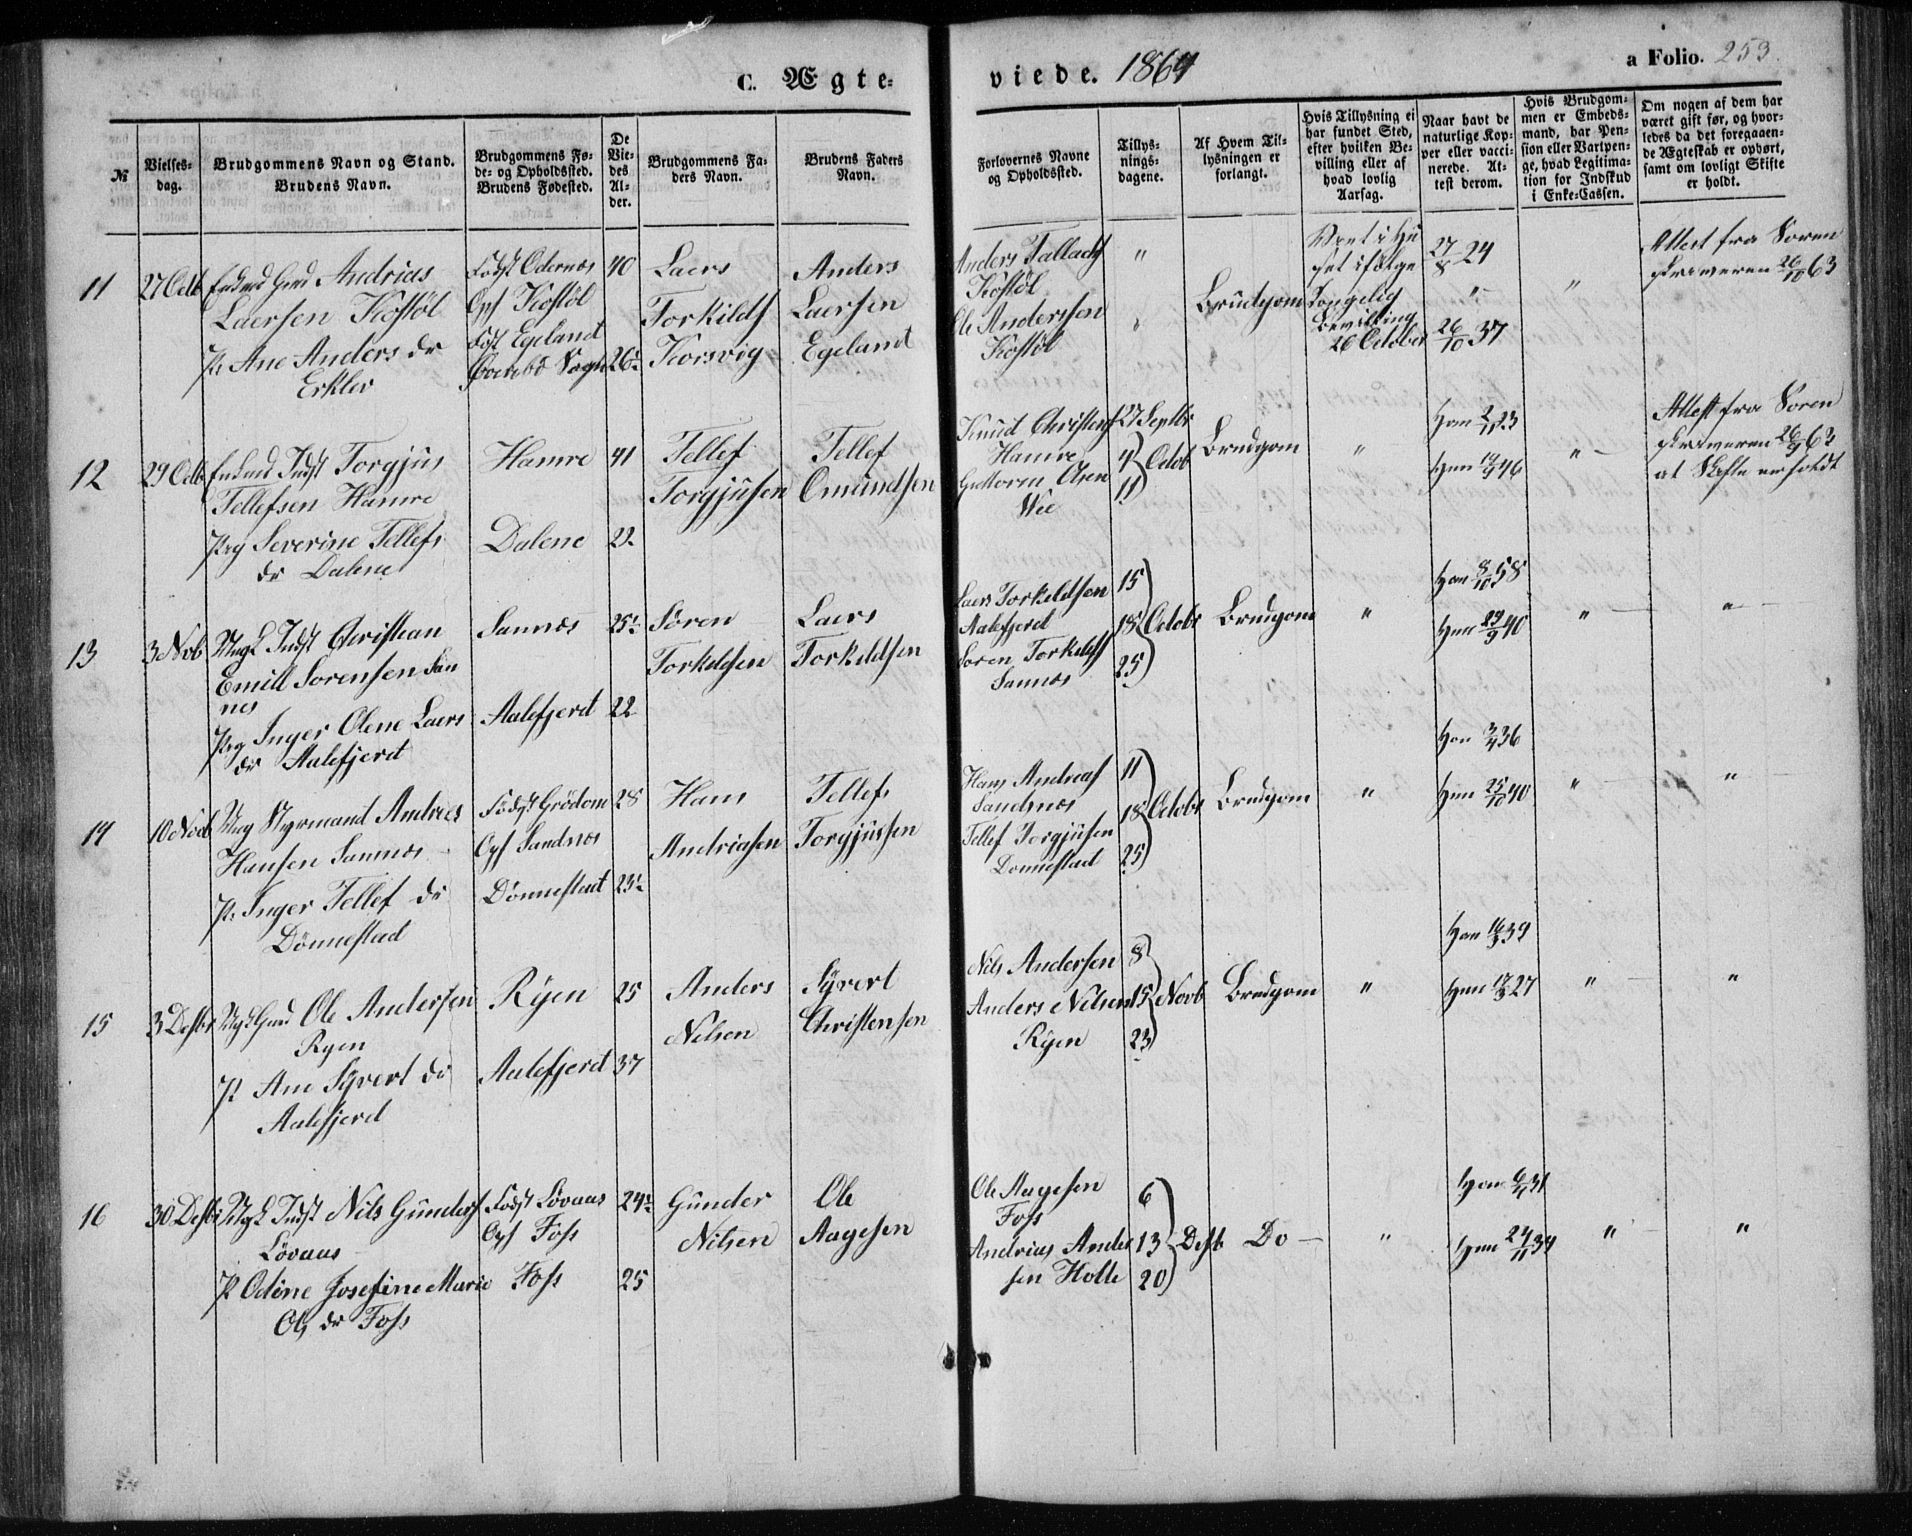 C. Ægte-
viede. 1864
a Folio. 253.
№
Vielses-
dag.
Brudgommens Navn og Stand.
Brudens Navn.
Brudgommens Fø-
de- og Opholdssted.
Brudens Fødested.
De
Vie-
des
Al-
der.
Brudgommens Fa-
ders Navn.
Brudens Faders
Navn.
Forlovernes Navne
og Opholdssted.
Tillys-
nings-
dagene.
Af Hvem Til-
lysningen er
forlangt.
Hvis Tillysning ei
har fundet Sted,
efter hvilken Be-
villing eller af
hvad lovlig
Aarsag.
Naar havt de
naturlige Kop-
per eller vacci-
nerede. At-
test derom.
Hvis Brudgom-
men er Embeds-
mand, har Pen-
sion eller Vartpen-
ge, hvad Legitima-
tion for Indskud
i Enke-Cassen.
Om nogen af dem har
været gift før, og hvor-
ledes da det foregaaen-
de Ægteskab er ophørt,
samt om lovligt Skifte
er holdt.
11
27 Octb
Enkmd Gmd Andrias
Laersen Kostöl
P. Ane Anders dr
Erklev
Födt Odernæs
Ops Kostöl
Föd Egeland
Sogn
40
26½
Laers
Torkilds
Korsvig
Anders
Laersen
Egeland
Anders Tallachs
Kostöl
Ole Anderssen
Kostöl
"
"
Brudgom
Viet i Hu
set ifölge
Kongelig
Bevilling
26 October
27/8 24
"
26/10 37
"
Attest fra Soren
skriveren 26/10 63
12
29 Octb
Enkmd Indst Torgjus
Tellefsen Hamre
Pig Severine Tellefs
dr Dalene
Hamre
Dalene
41
22
Tellef
Torgjusen
Tellef
Omundsen
Knud Christens
Hamre
Guttorm Olsen
Wee
27 Septbr
4
11
Octob
Brudgom
"
Han 2/11 23
Hun 14/9 46
"
Attest fra Soren
skriveren 26/9 63
at Skifte er holdt
13
3 Nvb
Ungk Indst Christian
Emill Sorensen San
nes
Pig Inger Olene Laers
dr Aalefjerd
Sannæs
Aalefjerd
25½
22
Sören
Torkelsen
Laers
Torkildsen
Laers Torkildsen
Aalefjerd
Soren Torkilds
Sannæs
15
18
25
Octobr
Brudgom
"
Han 8/10 58
Hun 29/9 40
"
"
14
10 Novb
Ung Styrmand Andreas
Hansen Sannæs
P. Inger Tellef dr
Dönnestad
Födst Grödom
Ops Sandnæs
Dönnestad
28
23½
Hans
Andriasen
Tellef
Torgjussen
Hans Andreas
Sandnæs
Tellef Torgjusen
Donnestad
11
18
25
Octobr
Brudgom
"
Han 3/4 36
Hun 25/10 40
"
"
15
3 Desbr
Ungk Gmd Ole Andersen
Ryen
P Ane Syvert dr
Aalefjerd
Ryen
Aalefjerd
25
37
Anders
Nilsen
Syvert
Christensen
Nils Andersen
Anders Nilsen
Ryen
8
15
23
Novb
Brudgom
"
Han 16/3 39
Hun 17/3 27
"
"
16
30 Desbr
Ungk Indst Nils Gunders
Lövaas
P Odine Josefine Marie
Ols dr Foss
Födst Lövaas
Ops Foss
Foss
24½
25
Gunder
Nilsen
Ole
Aagesen
Ole Aagesen
Foss
Andrias Ander
sen Holte
6
13
20
Desb
Do
"
Han 6/11 31
Hun 24/11 39
"
"